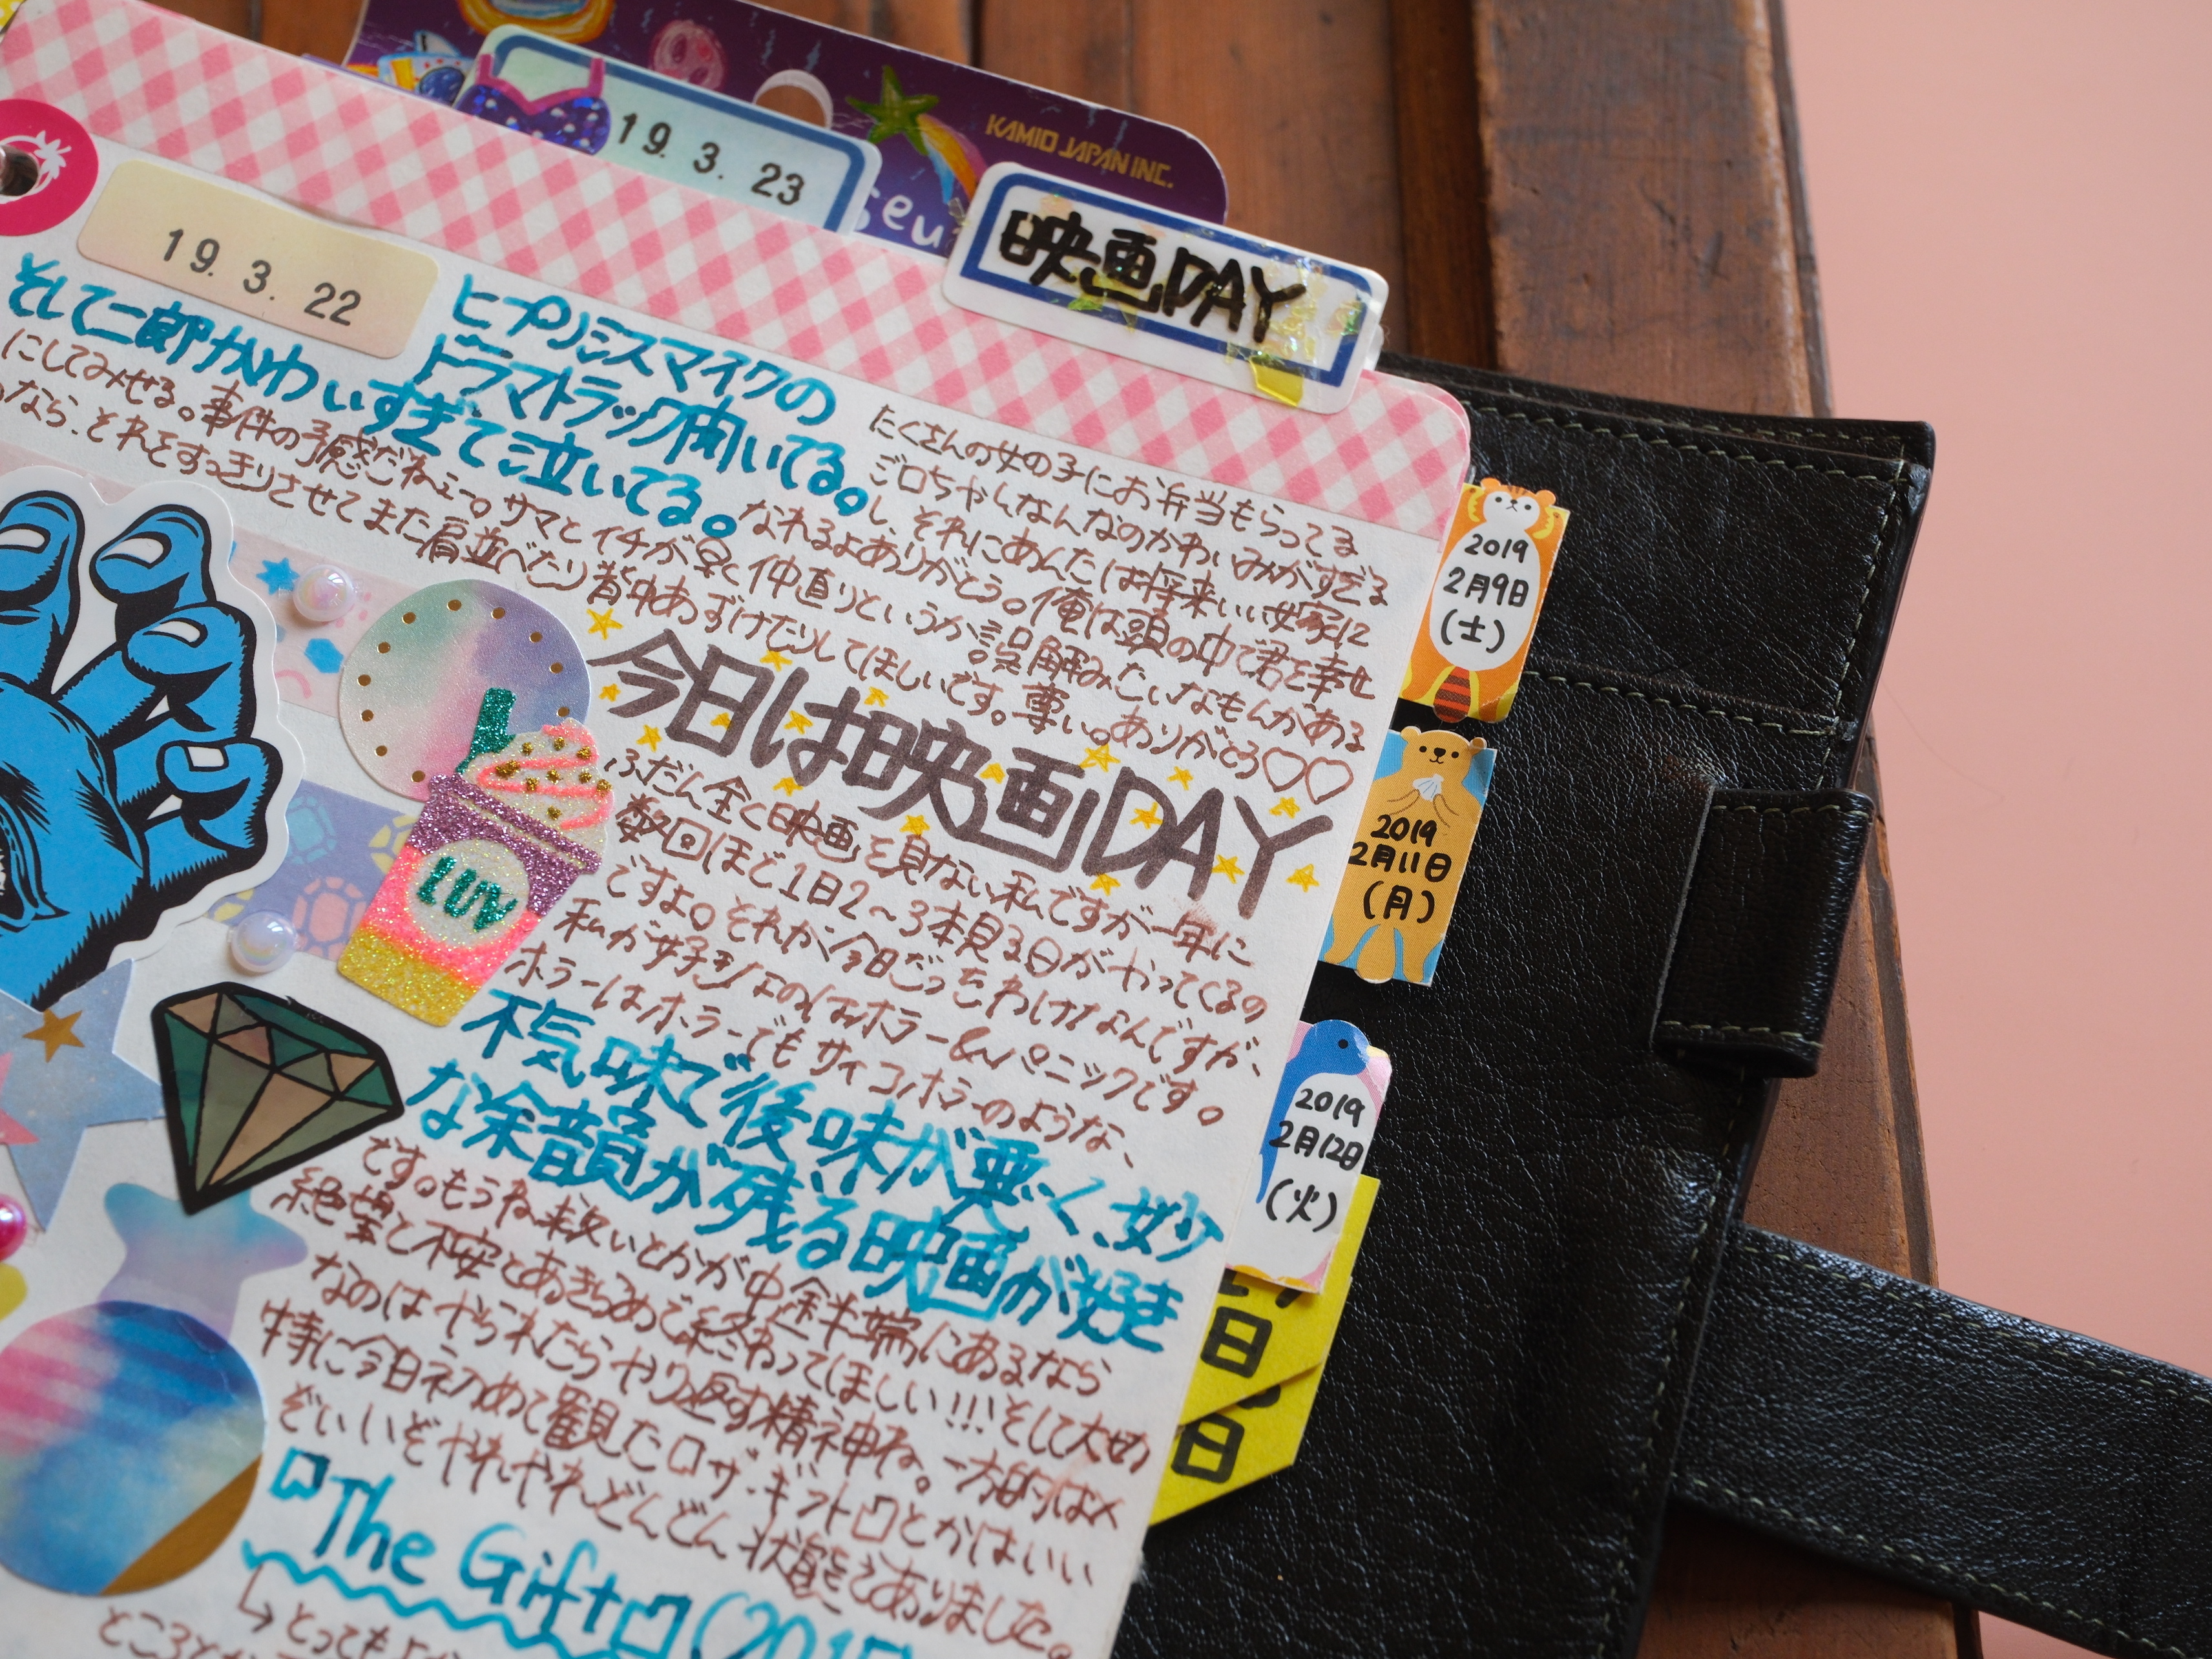 KAMIO JAPAN INC.
19. 3. 23
seu
映画DAY
19. 3. 22
ヒプノシスマイクの
ドラマトラック聞いてる。
そして二郎かわいすぎて泣いてる。
たくさんの女の子にお弁当もらってる
ゴロちゃんなんなのかわいみがすぎる
し、それにあんたは将来いいお嫁に
なれるよありがとう。俺は頭の中で君を幸せ
にしてみせる。事件の予感だねぇー。サマとイチが早く仲直りというか誤解みたいなもんがある
なら、それをすっきりさせてまた肩並べたり背中あずけたりしてほしいです。尊い。ありがとう♡♡
今日は映画DAY
ふだん全く映画を見ない私ですが一年に
数回ほど1日2〜3本見る日がやってくるの
ですよ。それが今日だったわけなんですが、
私が好きなのはホラー&パニックです。
ホラーはホラーでもサイコホラーのような、
不気味で後味が悪く、妙
な余韻が残る映画が好き
です。もうね救いとかが中途半端にあるなら
絶望と不安とあきらめで終わってほしい!!!そして大切
なのはやられたらやり返す精神ね。一方的はメ
特に今日初めて観たロザ・ギフトロとかはいい
ぞいいぞやれやれどんどん状態でありました。
The Gift
(201
↳とっても
ところ
LUV
2019
2月9日
(土)
2019
2月11日
(月)
2019
2月12日
(火)
日
日